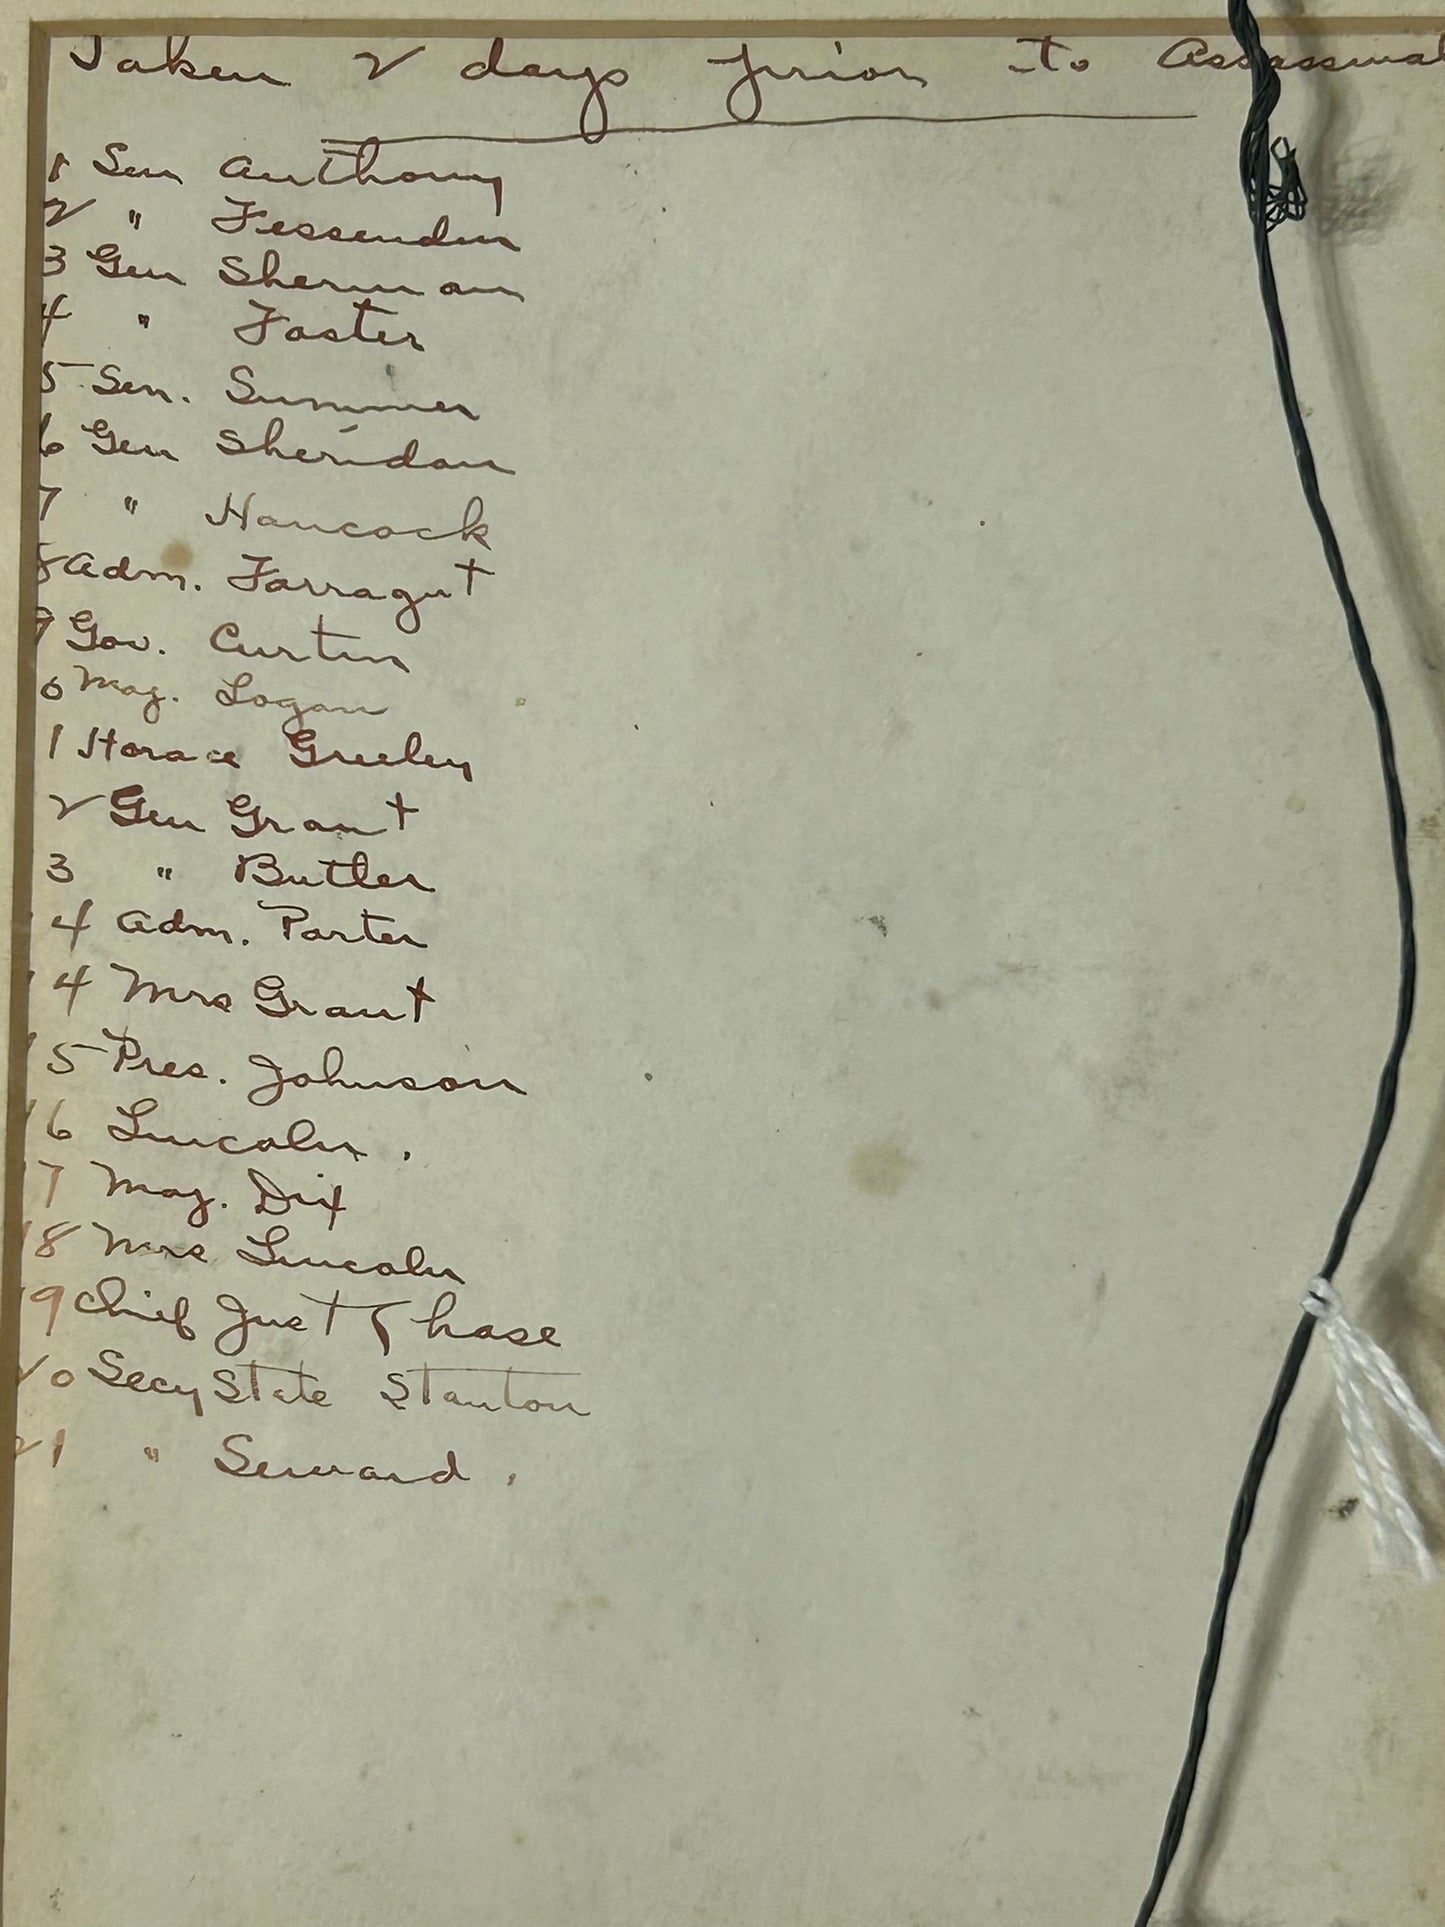 Taken 2 days prior to Assassinat
1 Sen Anthony
2 " Fessenden
3 Gen Sherman
4 " Foster
5 Sen. Sumner
6 Gen Sheridan
7 " Hancock
8 Adm. Farragut
9 Gov. Curtin
0 Maj. Logan
1 Horace Greeley
2 Gen Grant
3 " Butler
14 Adm. Porter
14 Mrs Grant
15 Pres. Johnson
16 Lincoln.
17 Maj. Dix
18 Mrs Lincoln
19 Chief Just Chase
20 Secy State Stanton
21 " Seward.